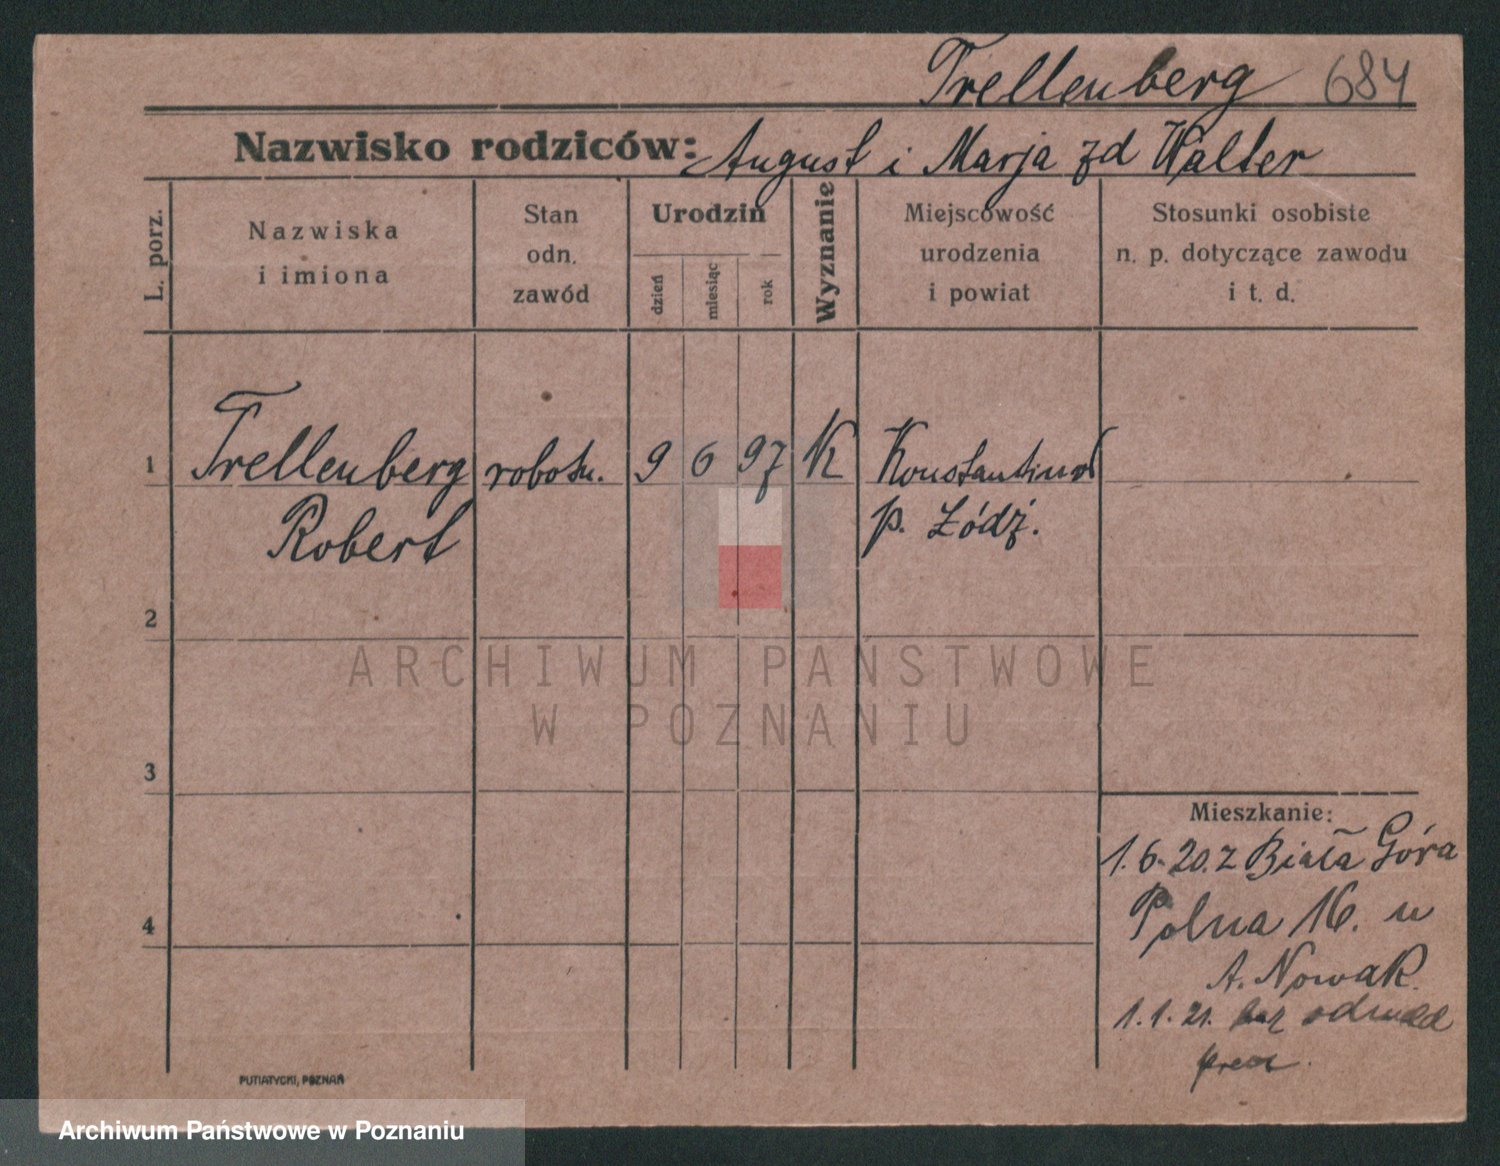 Trellenberg 684
Nazwisko rodziców: August i Marja zd Walter
L. porz.
Nazwiska
i imiona
Stan
odn.
zawód
Urodzin
dzień
miesiąc
rok
Wyznanie
Miejscowość
urodzenia
i powiat
Stosunki osobiste
n. p. dotyczące zawodu
i t. d.
1 Trellenberg robotn. 9 6 97 K Konstantinow
Robert p. Łódź.
2
ARCHIWUM PAŃSTWOWE
W POZNANIU
3
Mieszkanie:
1.6.20. z Biała Góra
Polna 16. u
4
A. Nowak.
1.1.21. bez odmeld
PUTIATYCKI, POZNAŃ
Archiwum Państwowe w Poznaniu